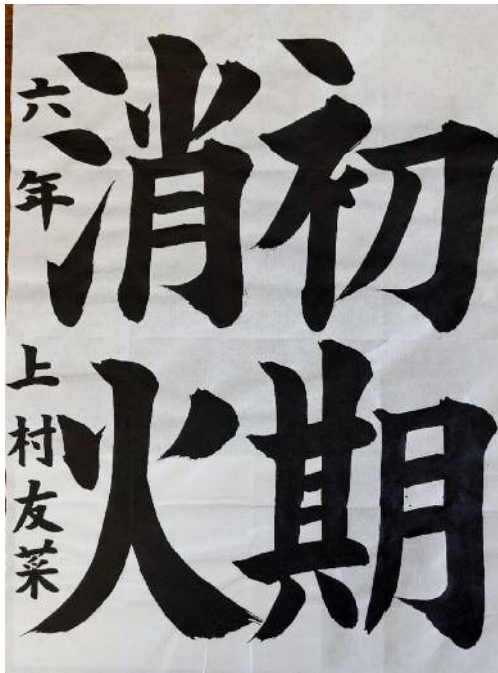 初期
消火
六年 上村友菜